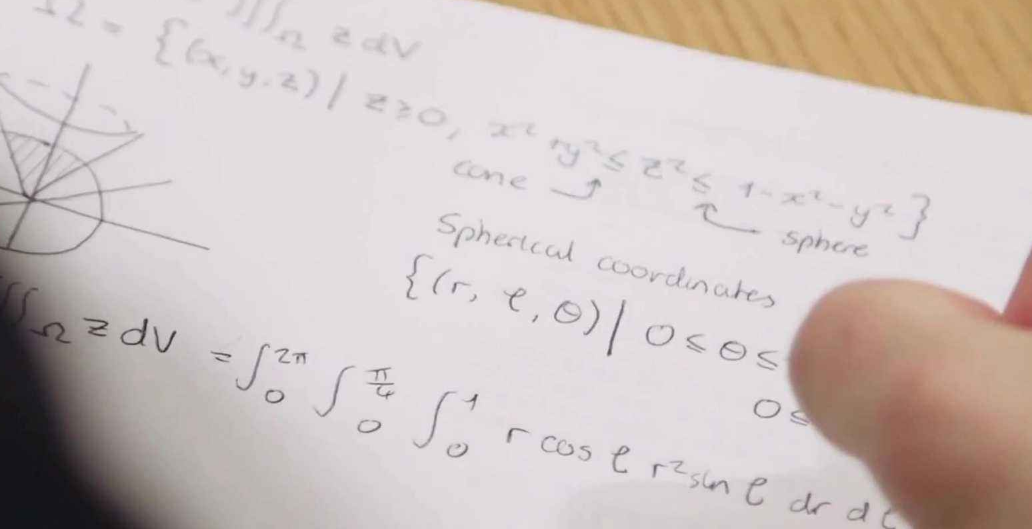 ∭_Ω z dV
Ω = {(x, y, z) | z ≥ 0, x² + y² ≤ z² ≤ 1 - x² - y²}
cone
sphere
Spherical coordinates
{(r, φ, θ) | 0 ≤ θ ≤
0 ≤
∭_Ω z dV = ∫₀^{2π} ∫₀^{π/4} ∫₀^1 r cos φ r² sin φ dr dφ